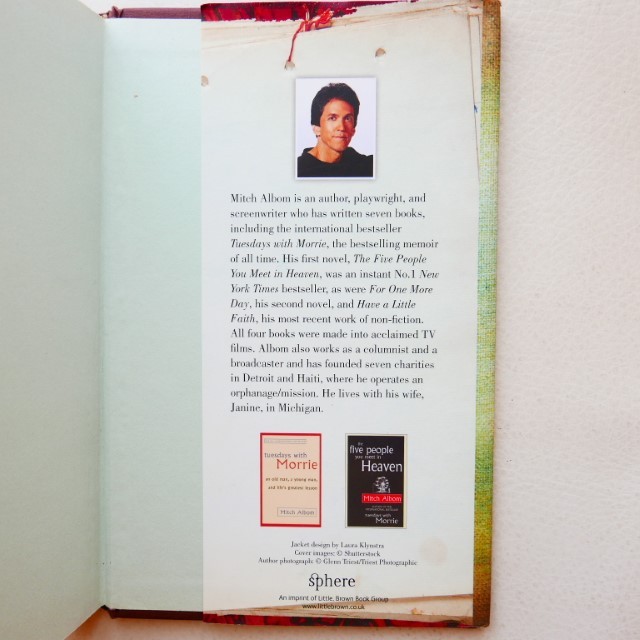 Mitch Albom is an author, playwright, and
screenwriter who has written seven books,
including the international bestseller
Tuesdays with Morrie, the bestselling memoir
of all time. His first novel, The Five People
You Meet in Heaven, was an instant No.1 New
York Times bestseller, as were For One More
Day, his second novel, and Have a Little
Faith, his most recent work of non-fiction.
All four books were made into acclaimed TV
films. Albom also works as a columnist and a
broadcaster and has founded seven charities
in Detroit and Haiti, where he operates an
orphanage/mission. He lives with his wife,
Janine, in Michigan.
tuesdays with
Morrie
an old man, a young man,
and life's greatest lesson
Mitch Albom
the
five people
you meet in
Heaven
Mitch Albom
tuesdays with
Morrie
Jacket design by Laura Klynstra
Cover images: © Shutterstock
Author photograph: © Glenn Triest/Triest Photographic
sphere
An imprint of Little, Brown Book Group
www.littlebrown.co.uk